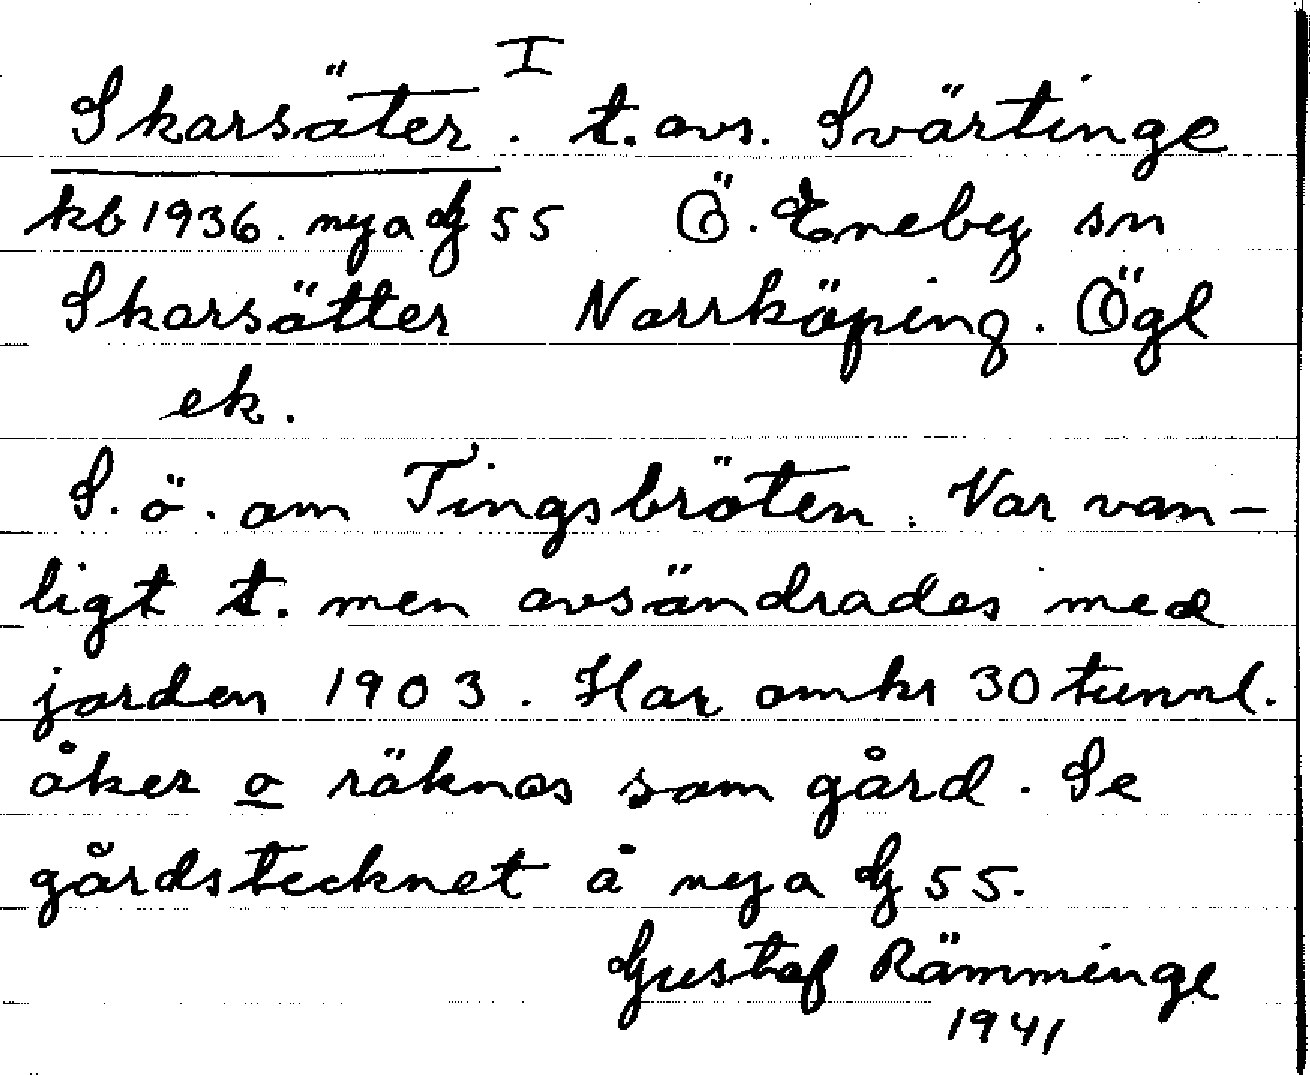 I
Skarsäter. t. avs. Svärtinge
kb 1936. nya G 55 Ö. Eneby sn
Skarsätter Norrköping. Ögl
ek.
S. ö. om Tingsbröten. Var van-
ligt t. men avsändrades med
jorden 1903. Har omkr 30 tunnl.
åker o räknas som gård. Se
gårdstecknet å nya G 55.
Gustaf Rämminge
1941